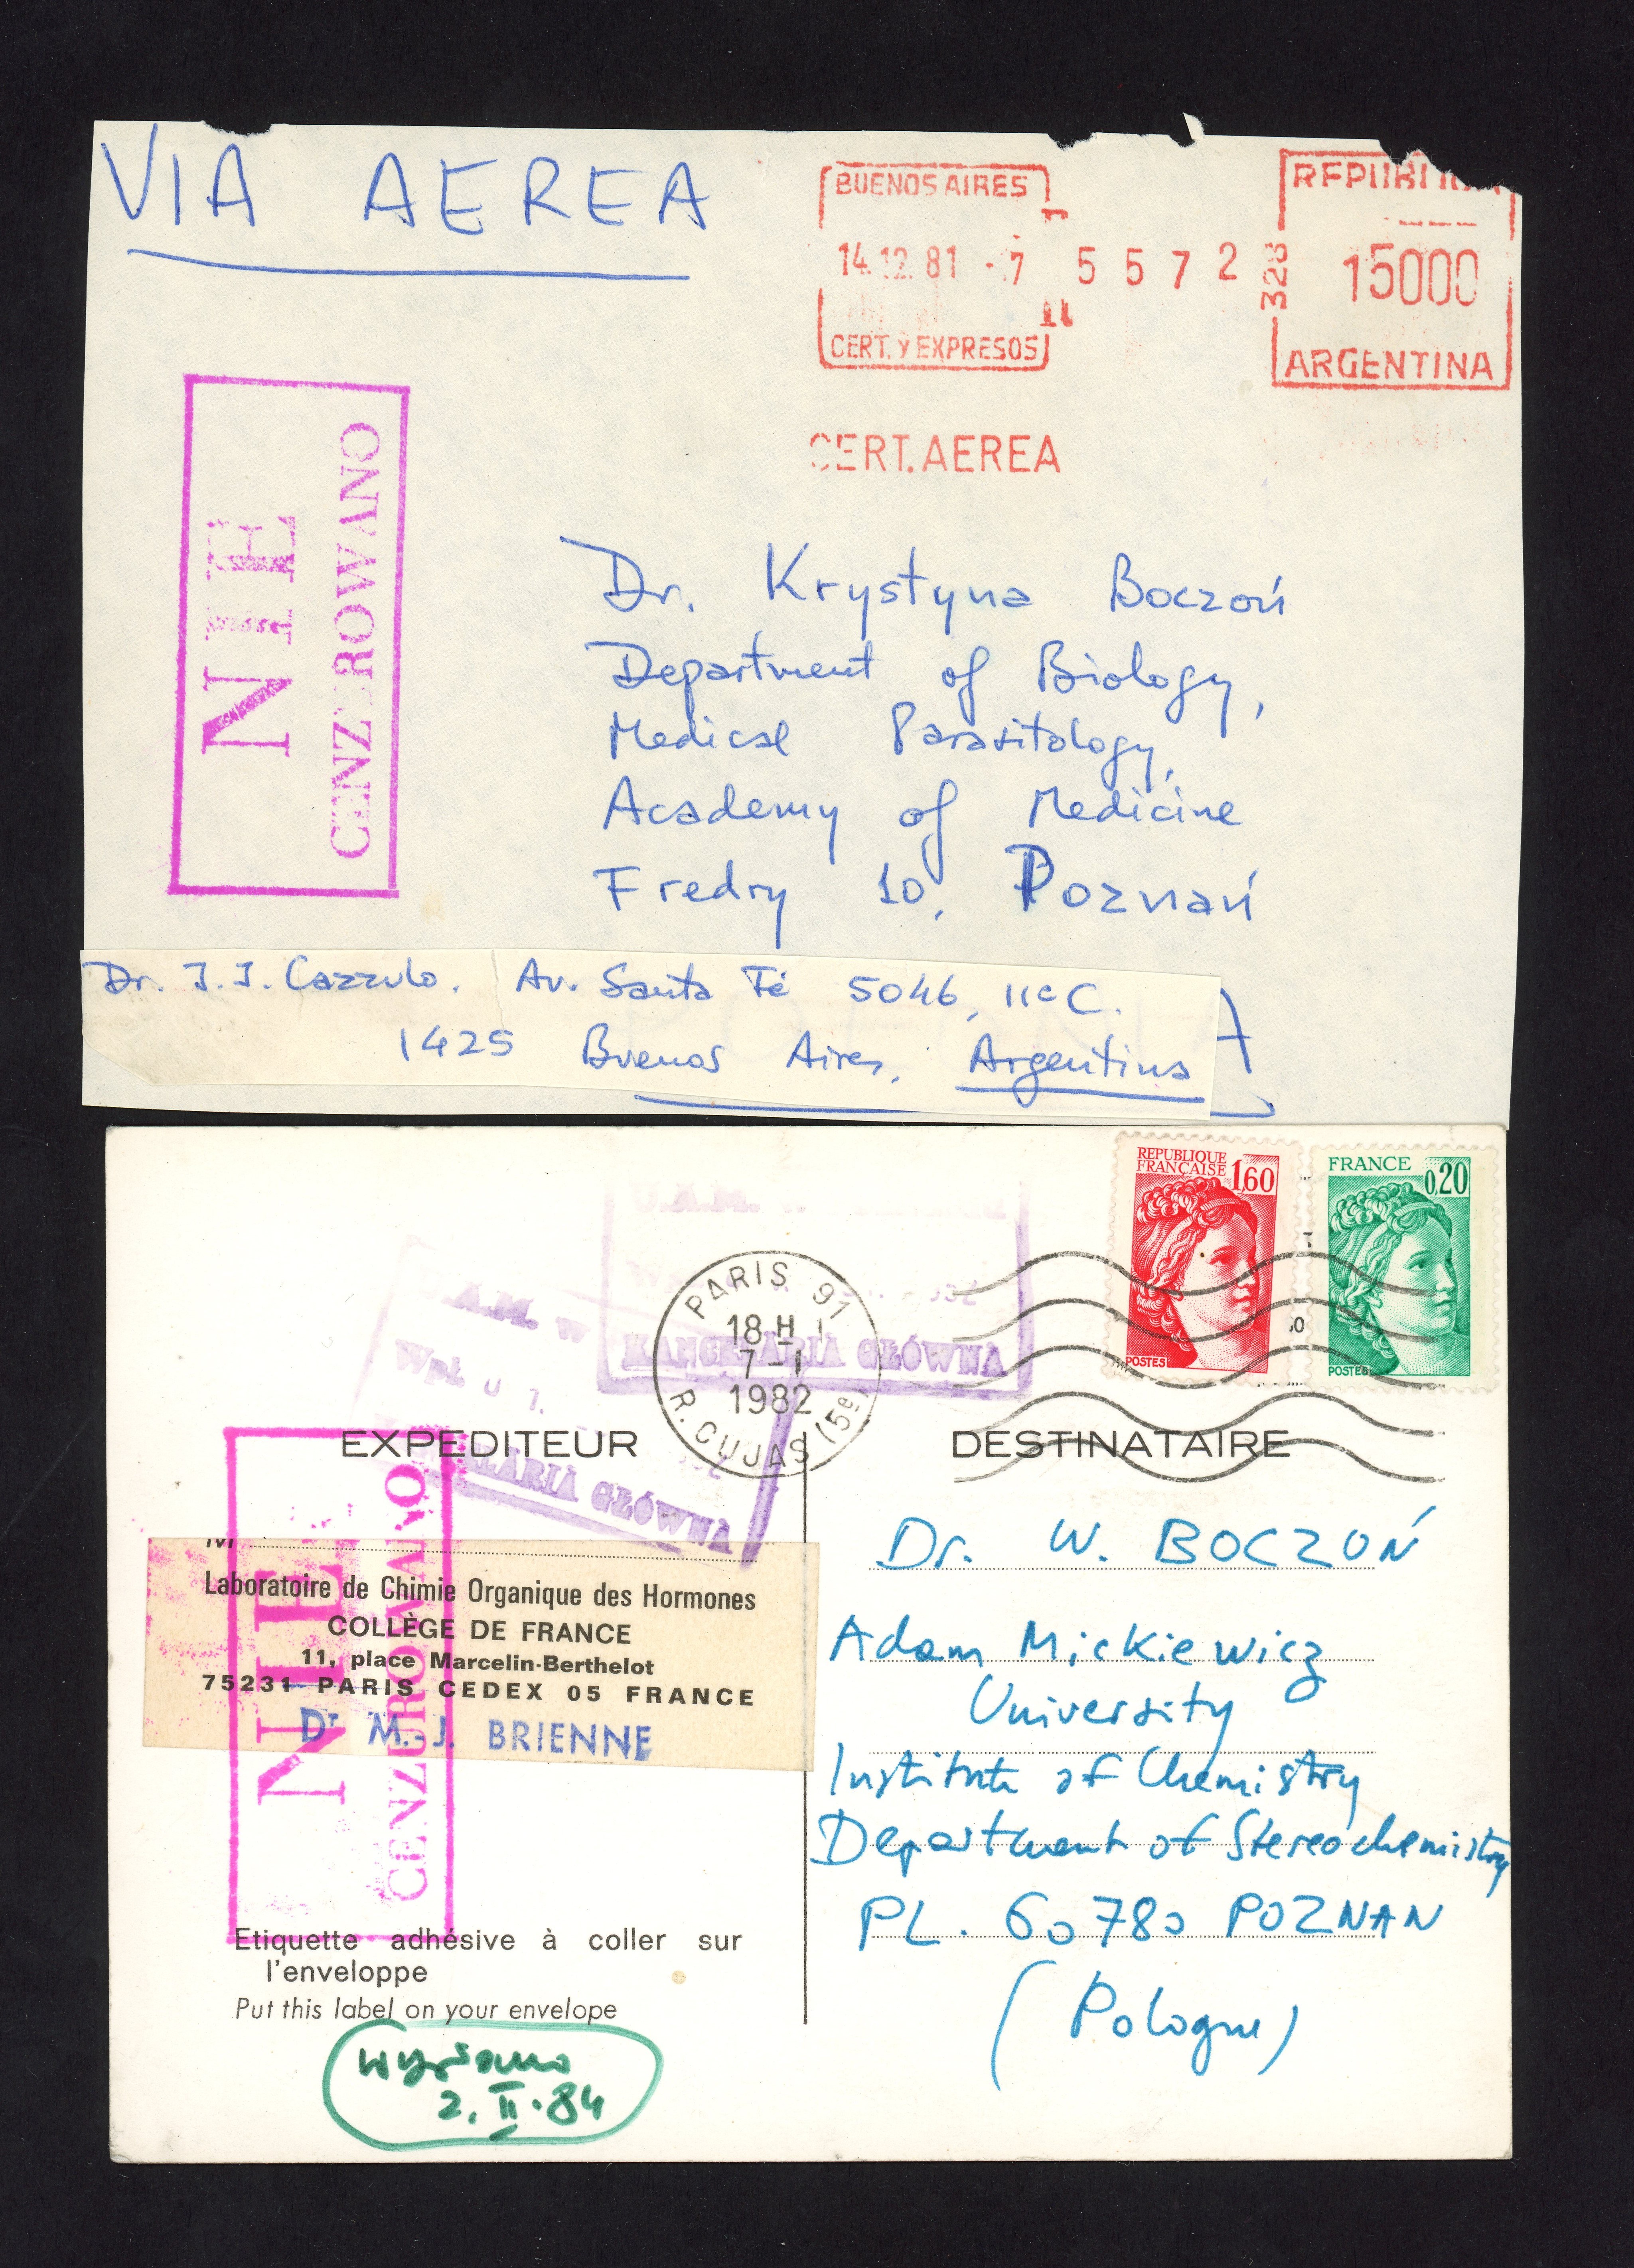 VIA AEREA
BUENOS AIRES
14.12.81 - 7
CERT. Y EXPRESOS
5 5 7 2
328
REPUBLICA
15000
ARGENTINA
CERT. AEREA
NIE
CENZUROWANO
Dr. Krystyna Boczoń
Department of Biology,
Medical Parasitology,
Academy of Medicine
Fredry 10, Poznań
Dr. J.J. Cazzulo. Av. Santa Fé 5046, 11º C.
1425 Buenos Aires, Argentina
REPUBLIQUE
FRANÇAISE 1,60
POSTES
FRANCE
0,20
POSTES
PARIS 91
18 H
7-1
1982
R. CUJAS (5e)
KANCELARIA GŁÓWNA
KANCELARIA GŁÓWNA
EXPEDITEUR
NIE
CENZUROWANO
M
Laboratoire de Chimie Organique des Hormones
COLLÈGE DE FRANCE
11, place Marcelin-Berthelot
75231 PARIS CEDEX 05 FRANCE
Dr M.-J. BRIENNE
Etiquette adhésive à coller sur
l'enveloppe
Put this label on your envelope
2. II. 84
DESTINATAIRE
Dr. W. BOCZOŃ
Adam Mickiewicz
University
Institute of Chemistry
Department of Stereochemistry
PL. 60780 POZNAN
(Pologne)